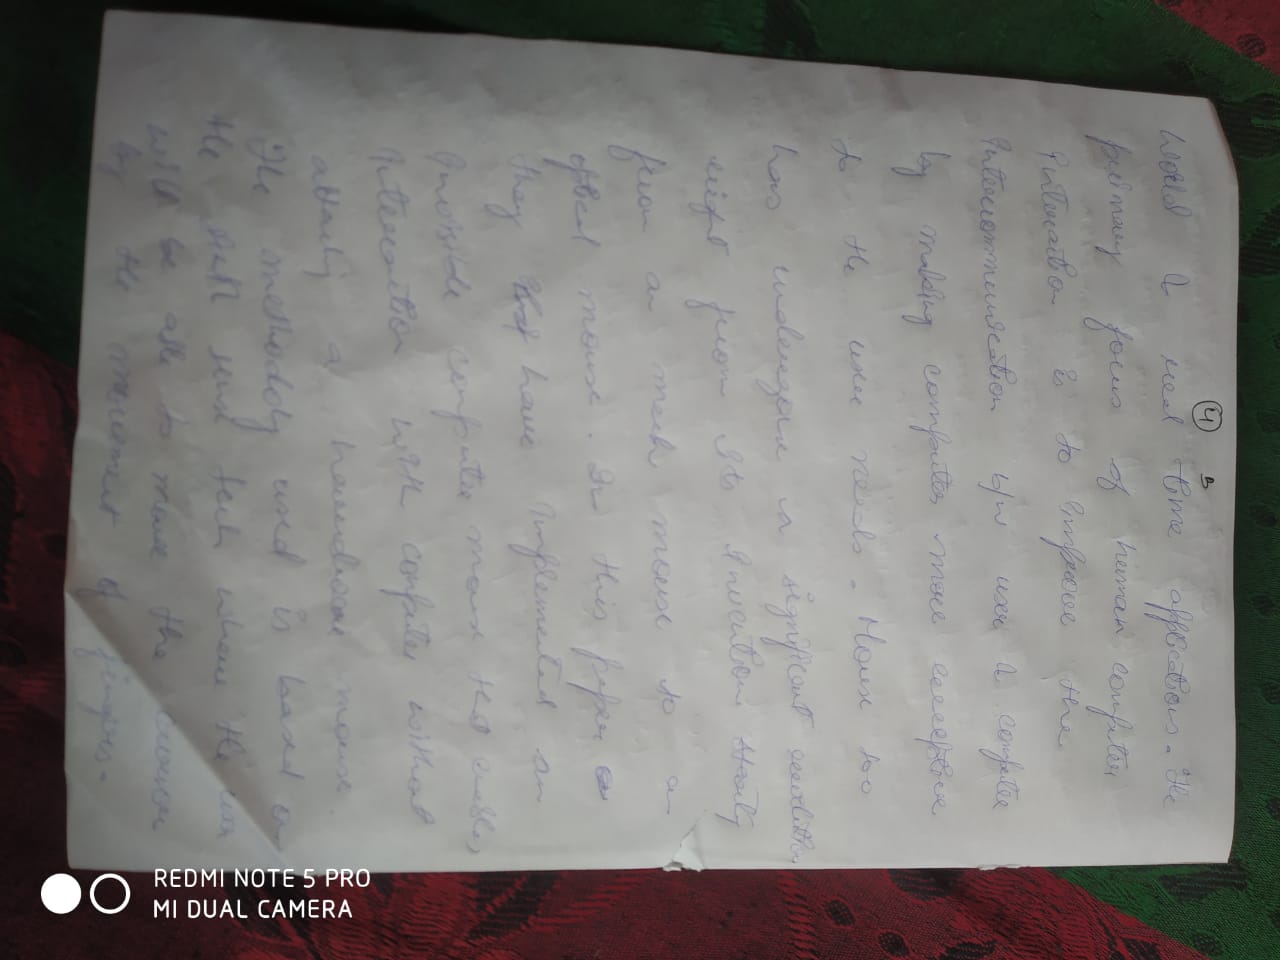 4
B
world & real time applications. The
primary focus of human computer
interaction is to improve the
intercommunication b/w user & computer
by making computer more receptive
to the user needs. Mouse too
has undergone a significant
right from its invention
from a mech mouse to an
optical mouse. In this paper
they have implemented an
invisible computer mouse that enables
interaction with computer without
a hardware mouse.
The methodoly used is based on
the tech where the user
will be able to move the cursor
by the movement of fingers.
REDMI NOTE 5 PRO
MI DUAL CAMERA